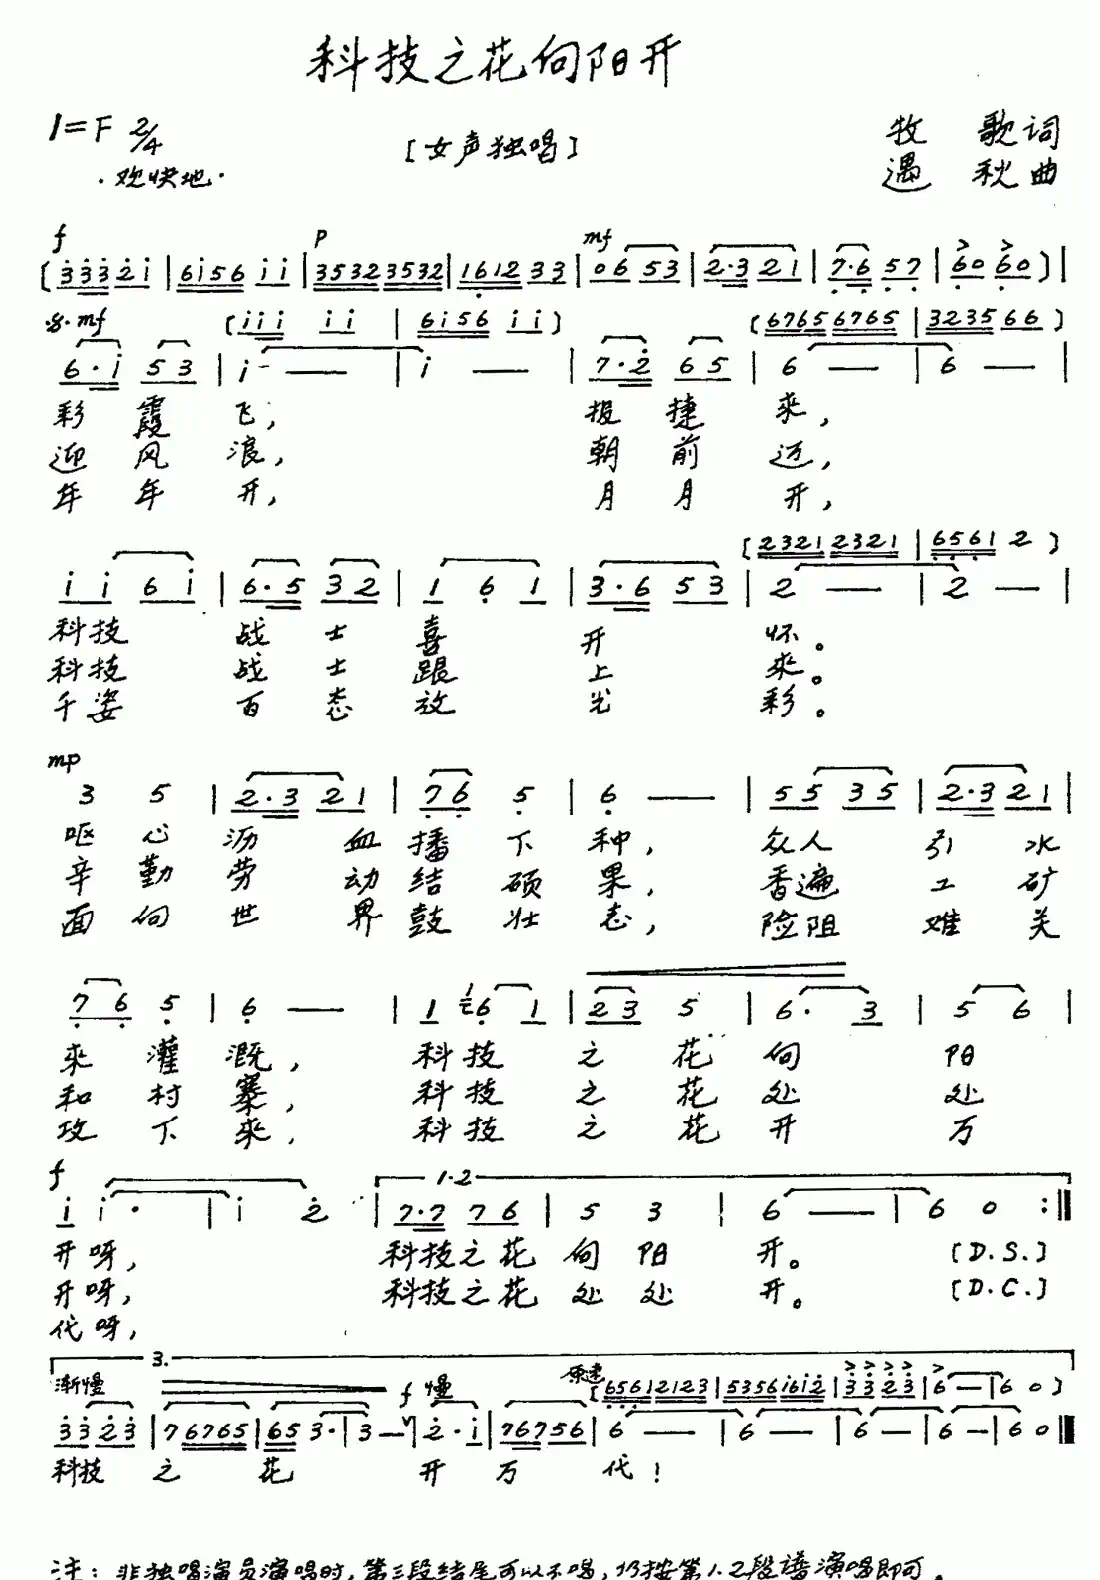 科技之花向阳开
1=F 2/4
[女声独唱]
牧 歌词
·欢快地·
遇 秋曲
f p mf
[3̇3̇3̇ 2̇1̇ | 6i56 ii | 35323532 | 1612 33 | 06 53 | 2·3 21 | 7·6 57 | 60 60 ) |
mf (iii ii | 6i56 ii) (6765 6765 | 3235 66)
6·i 53 | i — | i — | 7·2̇ 65 | 6 — | 6 — |
彩霞飞, 报捷来,
迎风浪, 朝前迈,
年年开, 月月开,
(2321 2321 | 6561 2)
ii 6i | 6·5 32 | 1 6 1 | 3·6 53 | 2 — | 2 — |
科技 战士喜 开 怀。
科技 战士跟 上 来。
千姿 百态放 光 彩。
mp
3 5 | 2·3 21 | 76 5 | 6 — | 55 35 | 2·3 21 |
呕心沥血播下种, 众人引水
辛勤劳动结硕果, 普遍工矿
面向世界鼓壮志, 险阻难关
76 5 | 6 — | 1 6 1 | 23 5 | 6· 3 | 5 6 |
来灌溉, 科技之花向 阳
和村寨, 科技之花处 处
攻下来, 科技之花开 万
f 1·2
i i· | i 2̇ | 7·7 76 | 5 3 | 6 — | 6 0 :‖
开呀, 科技之花向阳 开。 [D.S.]
开呀, 科技之花处处 开。 [D.C.]
代呀,
3.
渐慢 f 慢 原速 (6561 2123 | 5356 i6i2̇ | 3̇3̇ 2̇3̇ | 6 — | 6 0)
3̇3̇ 2̇3̇ | 7 6765 | 65 3· | 3 — | 2̇· i | 76756 | 6 — | 6 — | 6 — | 6 — | 6 0 ‖
科技 之 花 开 万 代!
注: 非独唱演员演唱时, 第三段结尾可以不唱, 仍按第1.2段谱演唱即可。